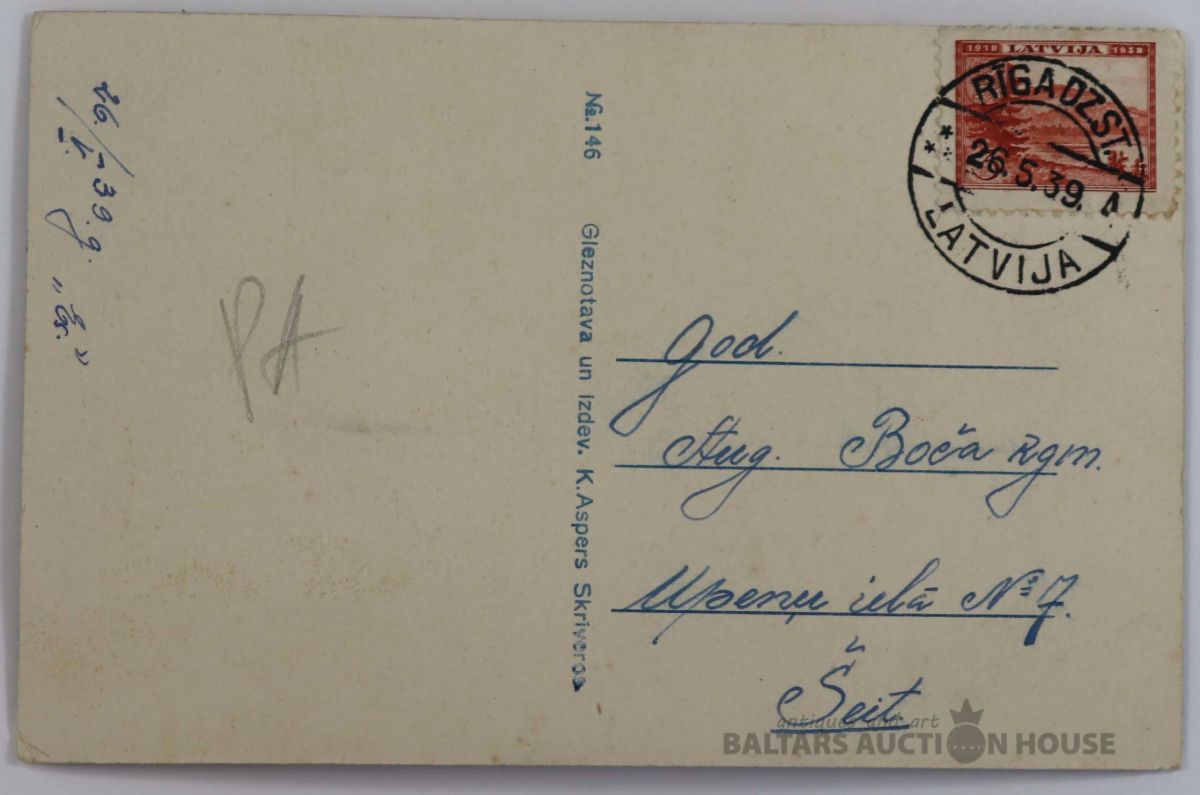 26./V.-39.g.
„Es.”
PA
№.146 Gleznotava un Izdev. K.Aspers Skrīveros
1918 LATVIJA 1938
RĪGA DZ.ST.
26.5.39. A
LATVIJA
God.
Aug. Boča kgm.
Upeņu ielā № 7.
Šeit.
antiques and art
BALTARS AUCTION HOUSE